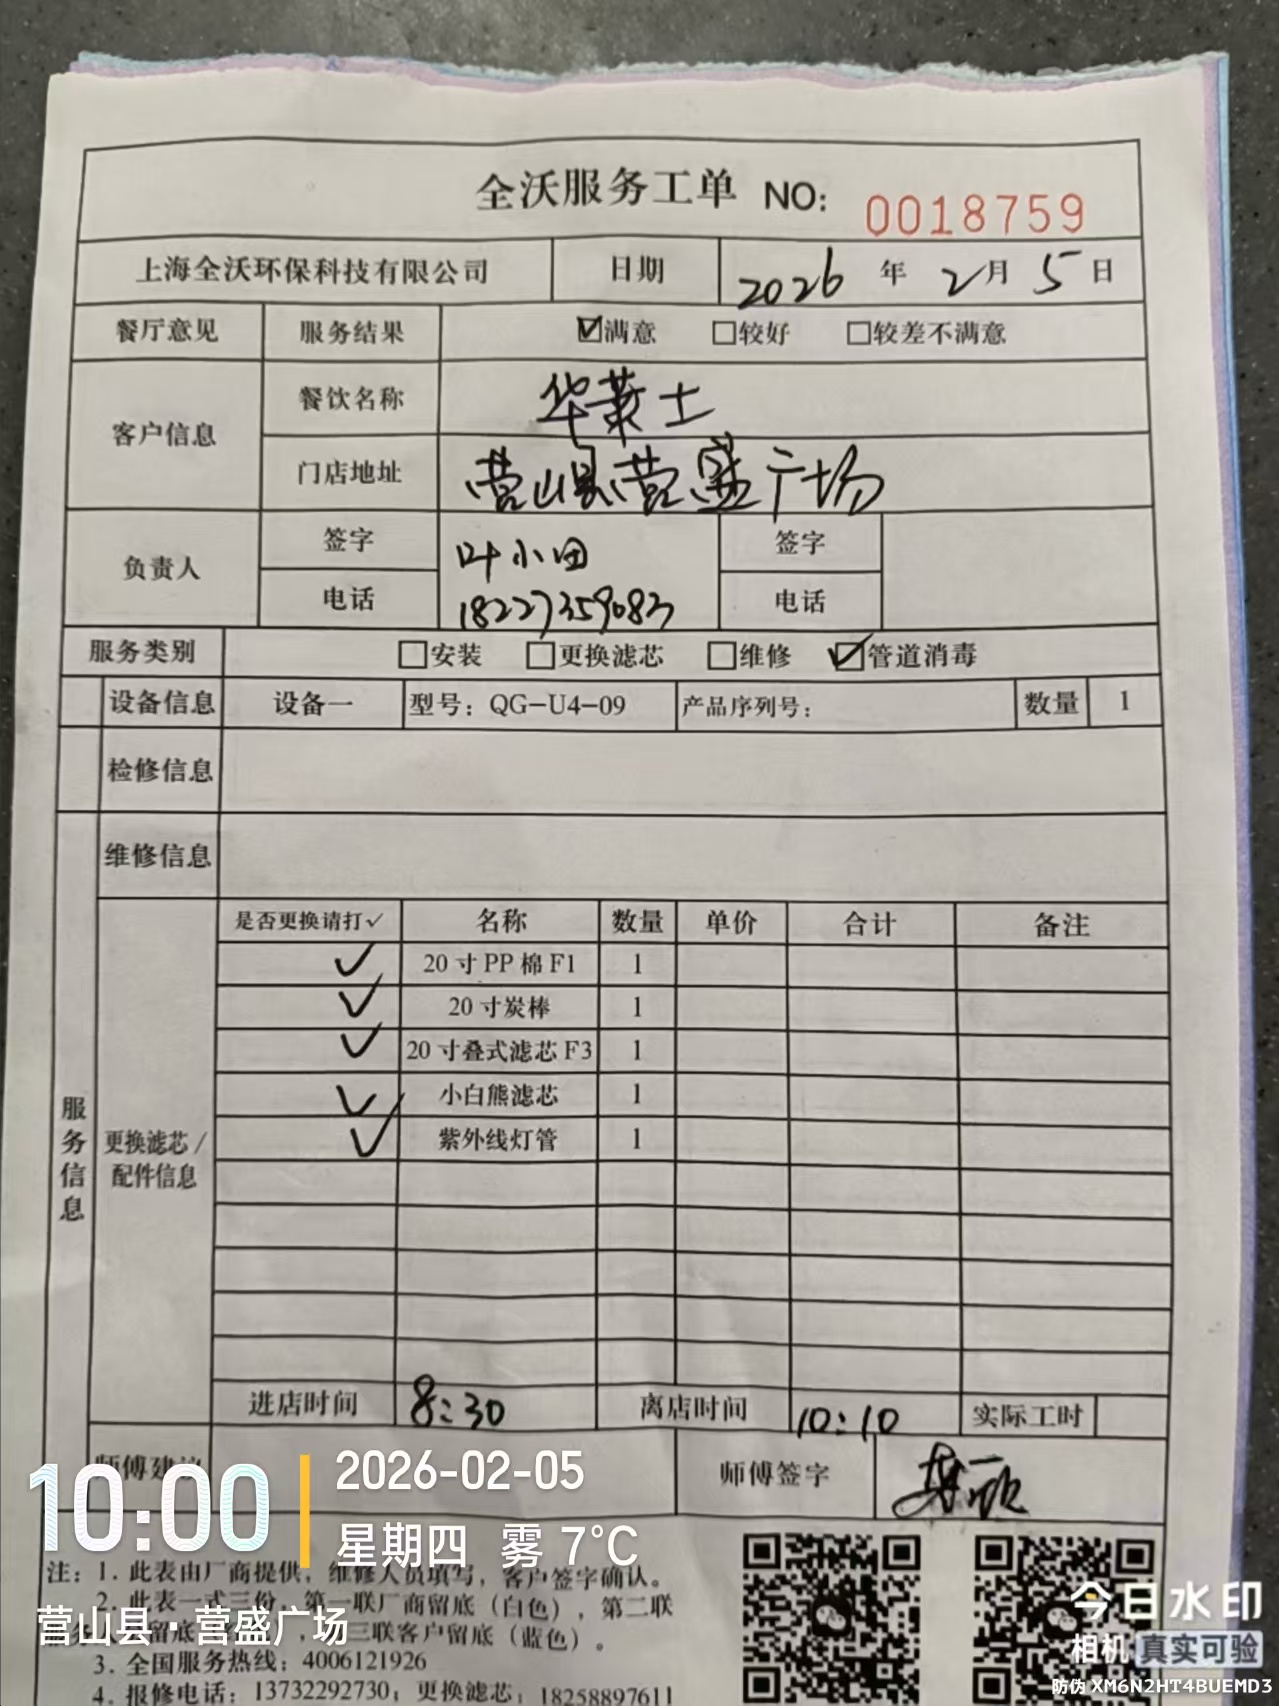 全沃服务工单 NO: 0018759
上海全沃环保科技有限公司 日期 2026 年 2 月 5 日
餐厅意见 服务结果 ☑满意 □较好 □较差不满意
客户信息 餐饮名称 华莱士
门店地址 营山县营盛广场
负责人 签字 叶小田 签字
电话 18227359083 电话
服务类别 □安装 □更换滤芯 □维修 ☑管道消毒
设备信息 设备一 型号：QG-U4-09 产品序列号： 数量 1
检修信息
维修信息
是否更换请打✓ 名称 数量 单价 合计 备注
✓ 20寸PP棉F1 1
✓ 20寸炭棒 1
✓ 20寸叠式滤芯F3 1
✓ 小白熊滤芯 1
✓ 紫外线灯管 1
服务信息
更换滤芯/
配件信息
进店时间 8:30 离店时间 10:10 实际工时
师傅建议 师傅签字
10:00
2026-02-05
星期四 雾 7°C
注：1. 此表由厂商提供，维修人员填写，客户签字确认。
2. 此表一式三份，第一联厂商留底（白色），第二联
留底 ，三联客户留底（蓝色）。
营山县·营盛广场
3. 全国服务热线：4006121926
4. 报修电话：13732292730；更换滤芯：18258897611
今日水印
相机 真实可验
防伪 XM6N2HT4BUEMD3